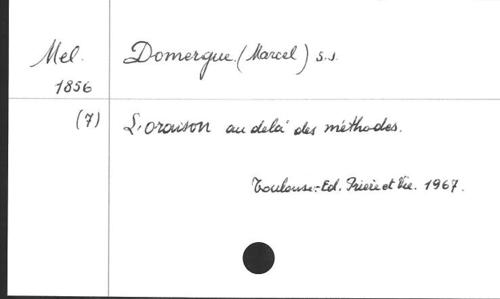 Mel. Domergue. (Marcel) s.s.
1856
(7) L'oraison au delà des méthodes.
Toulouse:-Ed. Prière et Vie. 1967.